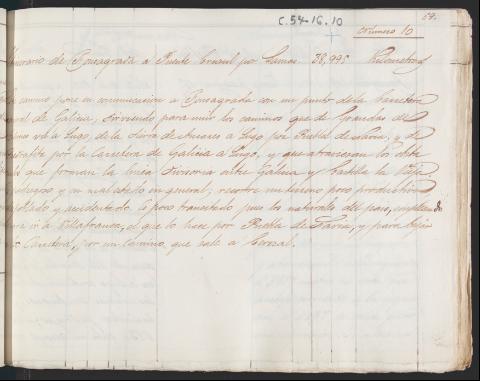 C.54-16.10
54.
Numero 10
Itinerario de Fonsagrada a Puente Cruzul por 38,995 Kilometros
Este camino pone en comunicacion a Fonsagrada con un punto de la Carretera
General de Galicia, sirviendo para unir los caminos que de Grandas de
va a Lugo, de la de a Lugo por Puebla de y de
por la Carretera de Galicia a Lugo, y que atraviesan los
que forman la linea divisoria entre Galicia y Castilla la Vieja
y en mal estado en general, recorre un terreno poco productivo
poblado y accidentado. Es poco transitado pues los naturales del pais, emplean
para ir a Villafranca, el que lo hace por Puebla de y para bajar
Carretera, por un camino que sale a